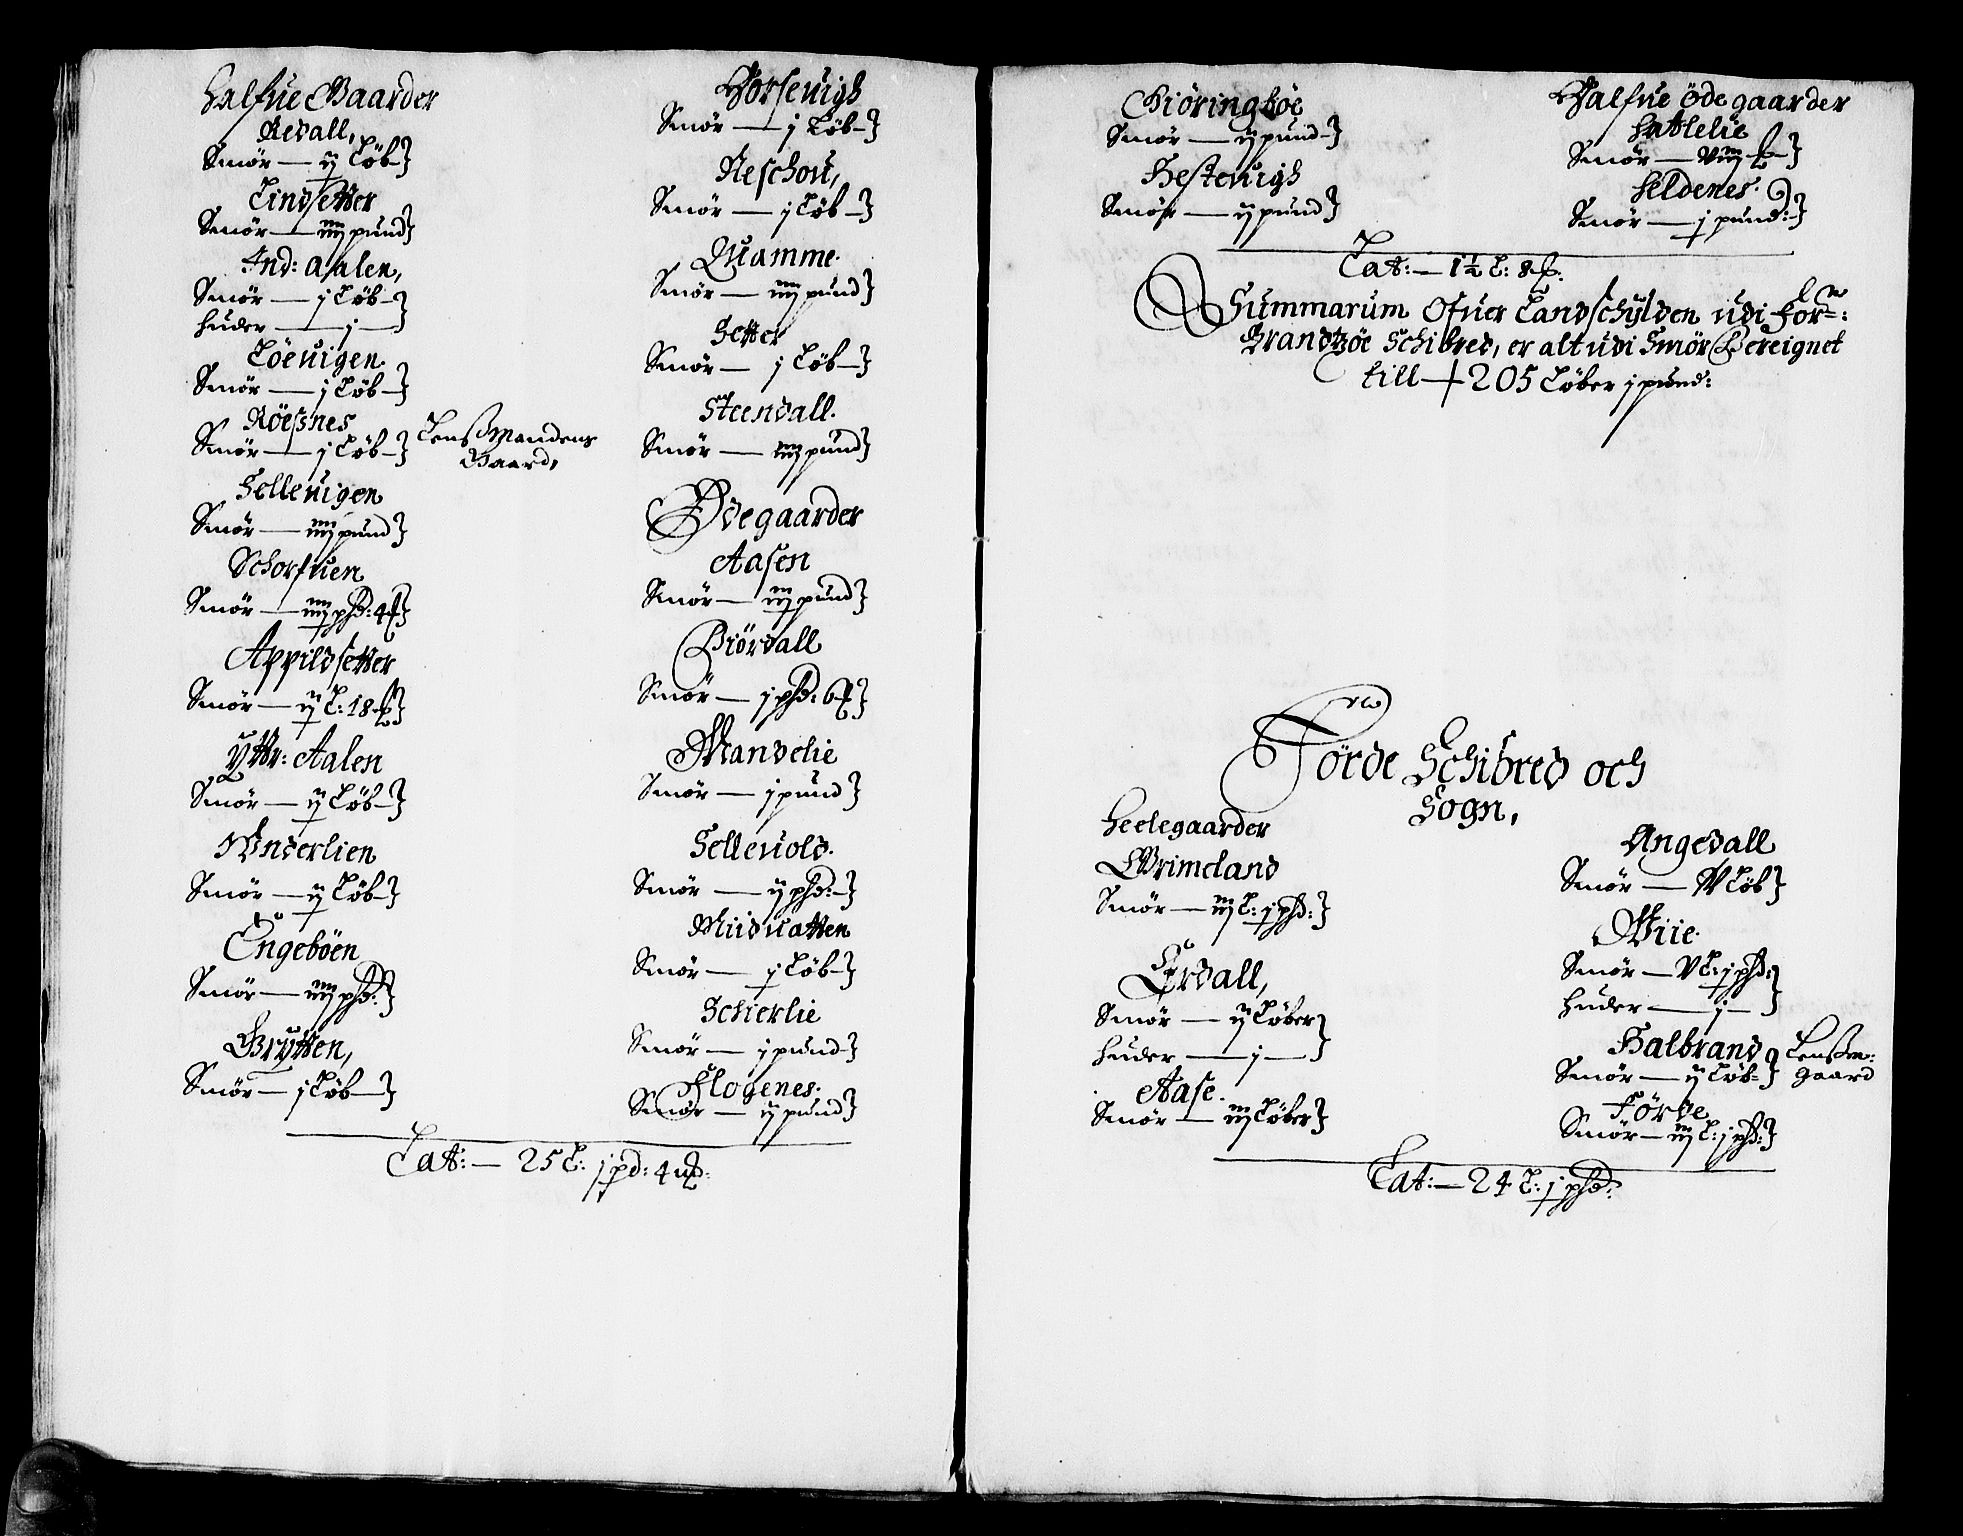 Halfue Gaarder
Redall,
Smør — ij Løb
Lindsetter
Smør — iiij pund
Ind: Aalen,
Smør — j Løb
Huder — j —
Løeuigen
Smør — j Løb
Røesnes
Smør — j Løb Lenßmandens
Gaard,
Selleuigen
Smør — iiij pund
Schorfuen
Smør — iiij phd: 4
Appildsetter
Smør — ij L: 18
Ytter: Aalen
Smør — ij Løb
Vnderlien
Smør — ij Løb
Engebøen
Smør — iiij phd:
Grytten,
Smør — j Løb
Horseuigh
Smør — j Løb
Reschou,
Smør — j Løb
Quamme
Smør — iiij pund
Setter
Smør — j Løb
Steendall.
Smør — iiij pund
Ødegaarder
Aasen
Smør — iij pund
Biørdall
Smør — j phd: 6
Mandelie
Smør — j pund
Selleuold.
Smør — ij phd:
Miiduatten
Smør — j Løb
Schierlie
Smør — j pund
Flogenes:
Smør — ij pund
Lat: — 25 L: j pd: 4
Giøringbøe
Smør — ij pund
Hesteuigh
Smør — ij pund
Halfue Øde gaarder
Hatlelie
Smør — viij
Heldenes:
Smør — j pund:
Lat: — 1½ L: 8
Summarum Ofuer Landschylden udi for:
Brandzøe Schibred, er alt udi Smør Bereignet
till — 205 Løber j pund:
Førde Schibred och
Sogn,
Heelegaarder
Grimeland
Smør — iij L: j phd:
Erdall,
Smør — ij Løber
Huder — j —
Aase.
Smør — iij Løber
Angedall
Smør — Løb
Wiie
Smør — V L: j phd:
Huder — j —
Halbrand Lenßm:
Smør — ij Løb gaard
Førde
Smør — iij L: j phd:
Lat: — 24 L: j phd: